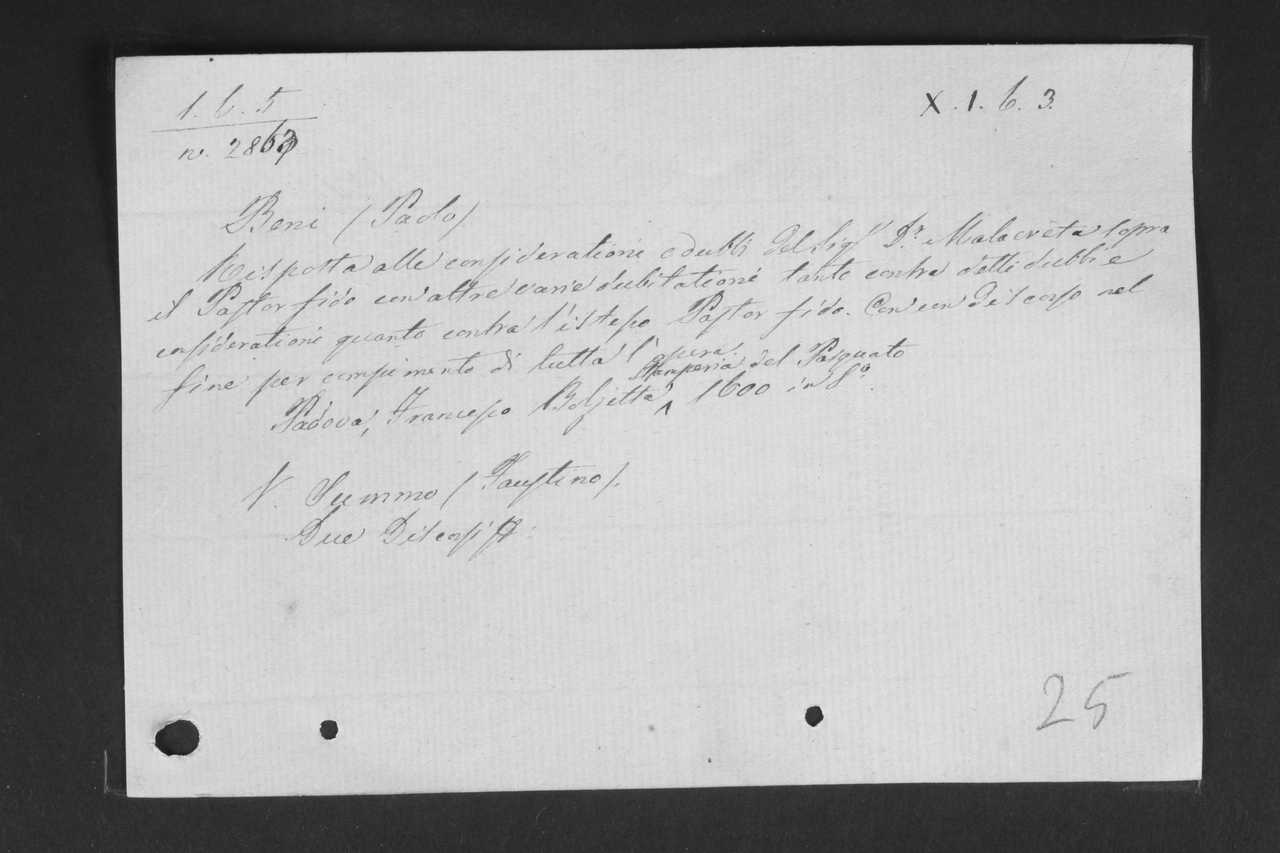 1. b. 5
X. 1. b. 3.
n. 2863
Beni (Paolo)
Risposta alle consideratione e dubbi del Sig.r D.r Malacreta sopra
il Pastor fido con altre varie dubitationi tanto contra detti dubbi e
consideratione quanto contra l'istesso Pastor fido. Con un discorso nel
fine per compimento di tutta l'opera.
Stamperia del Pasquato
Padova, Francesco Bolzetta, 1600 in 8o.
V. Summo (Faustino).
Due Discorsi
25